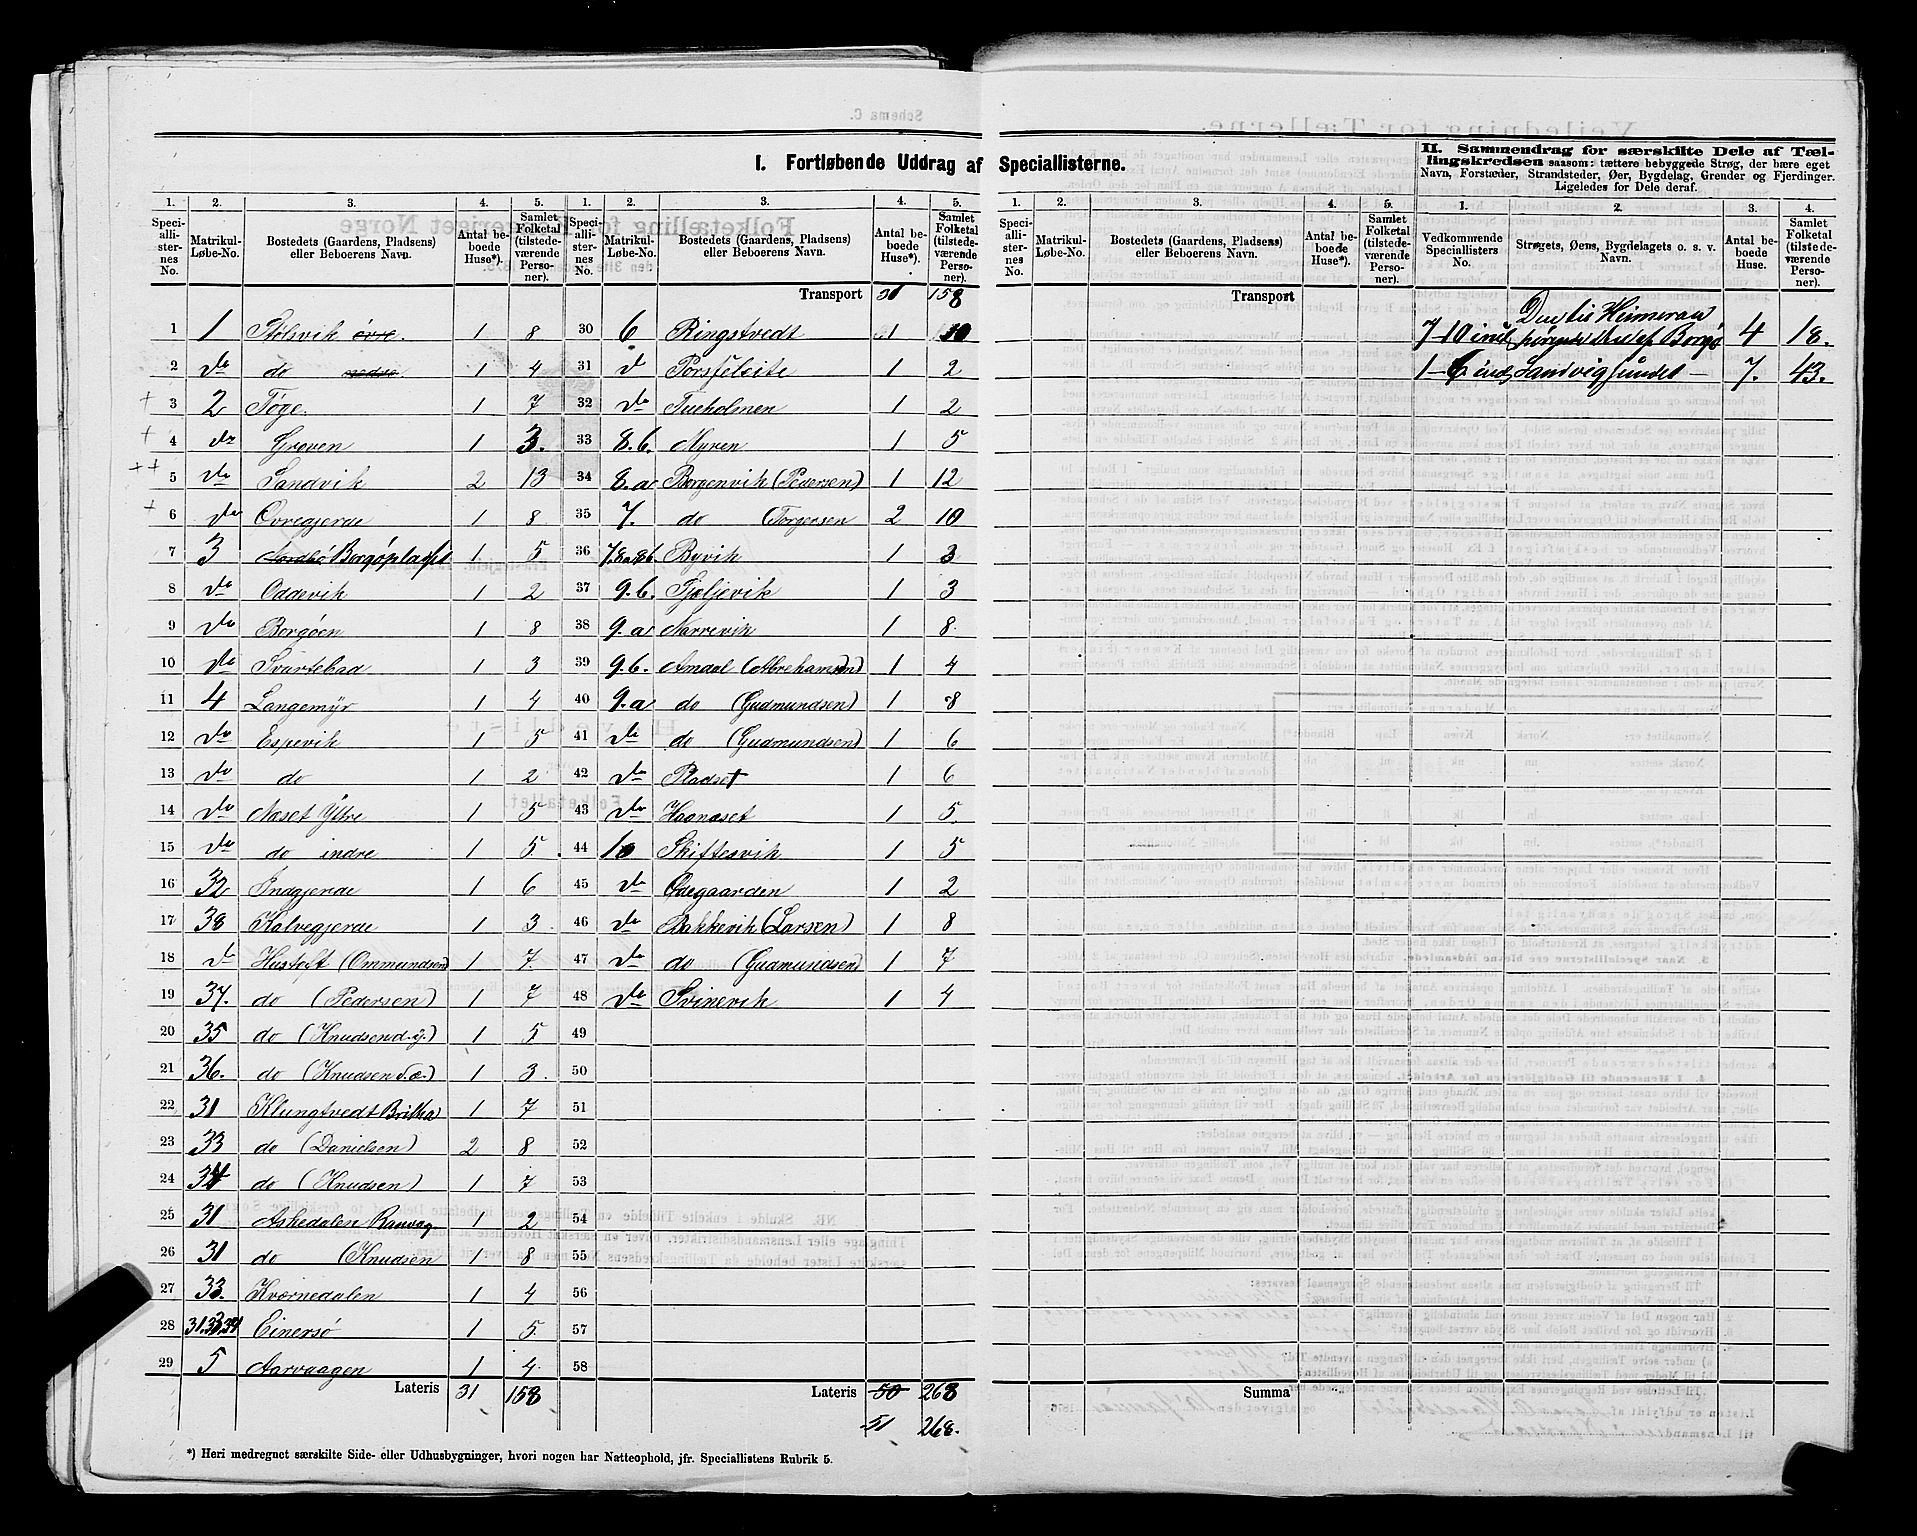 I. Fortløbende Uddrag af Speciallisterne.
II. Sammendrag for særskilte Dele af Tællingskredsen saasom: tættere bebyggede Strøg, der bære eget
Navn, Forstæder, Strandsteder, Øer, Bygdelag, Grender og Fjerdinger.
Ligeledes for Dele deraf.
1. 2. 3. 4. 5. 1. 2. 3. 4. 5.
Speciallisternes No. Matrikul-Løbe-No. Bostedets (Gaardens, Pladsens) eller Beboerens Navn. Antal beboede Huse*). Samlet Folketal (tilstedeværende Personer).
Speciallisternes No. Matrikul-Løbe-No. Bostedets (Gaardens, Pladsens) eller Beboerens Navn. Antal beboede Huse*). Samlet Folketal (tilstedeværende Personer).
1 1 Stølsvik øvre. 1 8
2 do do nedre. 1 4
3 2 Tøge. 1 7
4 do Greven 1 3.
5 do Sandvik 2 13
6 do Øvregjerde 1 8
7 3 Nordbø Borgøpladset 1 5
8 do Oddevik 1 2
9 do Borgøen 1 8
10 do Svartebad 1 3
11 4 Langemyr 1 4
12 do Espevik 1 5
13 do do 1 2
14 do Næset Ytre 1 5
15 do do indre 1 5.
16 32 Indgjerde 1 6
17 38 Kalvegjerde 1 3
18 do Hustoft (Ommundsen) 1 7
19 37. do (Pedersen) 1 7
20 35 do (Knudsen d.y.) 1 5
21 36. do (Knudsen d.æ.) 1 3
22 31 Klungtvedt Britha 1 7
23 33 do (Danielsen) 2 8
24 34 do (Knudsen) 1 7
25 31 Askedalen Ranvag 1 2
26 31 do (Knudsen 1 8
27 33. Kværnedalen 1 4
28 31.33.34 Einersø 1 5.
29 5 Aarvaagen 1 4
Lateris 31 158
Transport 31 158
30 6 Ringstvedt 1 10
31 d Porsfleite 1 2
32 do Tueholmen 1 2
33 8.b. Myren 1 5
34 8.a Borgenvik (Pedersen) 1 12
35 7. do (Torgersen 2 10
36 7.8a8b. Byvik 1 3
37 9.b. Fjeljevik 1 3
38 9.a Narrevik 1 8.
39 9.b. Amdal (Abrehamsen) 1 4
40 9.a do (Gudmundsen) 1 8
41 do do (Gudmundsen) 1 6
42 do Pladset 1 6
43 do Haanæset 1 5.
44 10 Skiftesvik 1 5
45 do Ødegaarden 1 2
46 do Bakkevik (Larsen) 1 8
47 do do (Gudmundsen) 1 7
48 do Svinevik 1 4
49
50
51
52
53
54
55
56
57
58
Lateris 50 268
51 268.
*) Heri medregnet særskilte Side- eller Udhusbygninger, hvori nogen har Natteophold, jfr. Speciallistens Rubrik 5.
1. 2. 3. 4. 5. 1. 2. 3. 4.
Speciallisternes No. Matrikul-Løbe-No. Bostedets (Gaardens, Pladsens) eller Beboerens Navn. Antal beboede Huse*). Samlet Folketal (tilstedeværende Personer).
Vedkommende Speciallisters No. Strøgets, Øens, Bygdelagets o. s. v. Navn. Antal beboede Huse. Samlet Folketal (tilstedeværende Personer).
Transport
7-10 incl
hørende Del af Borgø 4 18.
1-6 incl Sandvigsundet - 7. 43.
Summa